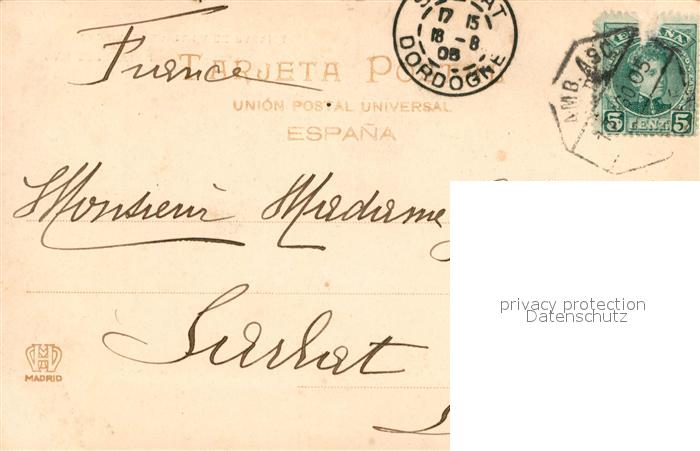 France
TARJETA POST
UNIÓN POSTAL UNIVERSAL
ESPAÑA
AT
17 15
18 - 8
05
DORDOGNE
AMB. ASC
05
5 CENT. 5
Monsieur Madame
Sarlat
MADRID
privacy protection
Datenschutz